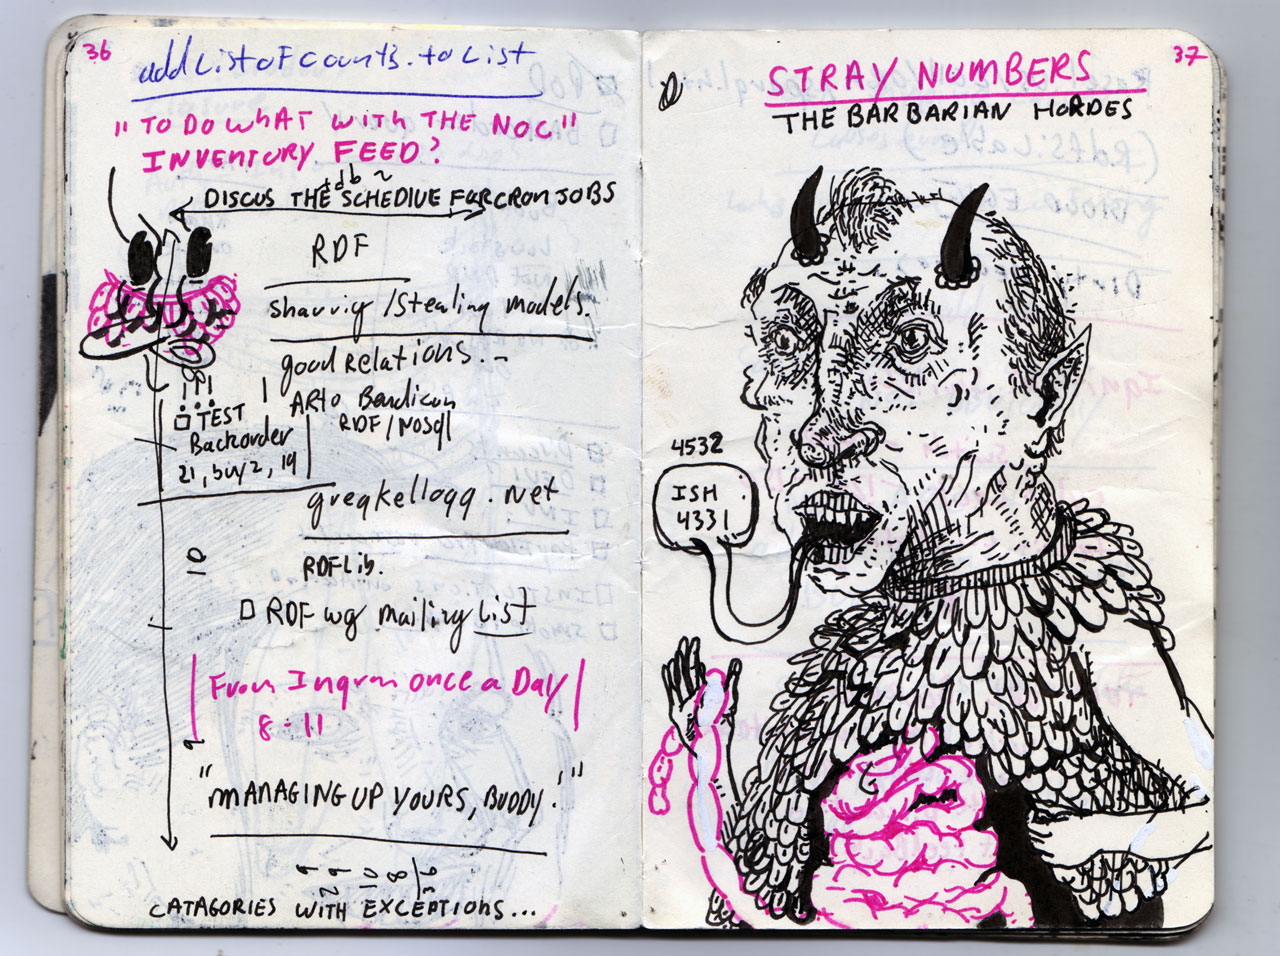 36
addListofcounts.toList
"TO DO WHAT WITH THE NOC"
INVENTORY FEED?
tdb ~
DISCUS THE SCHEDIVE FURCRON JOBS
RDF
sharrig /Stealing models.
goodRelations.~
ARtO Bendicun
RDF/NoSql
TEST
Backorder
21, buy 2, 19
gregkellogg.net
10
RDFLib.
RDF wg mailing List
From Ingram once a Day
8-11
9
"MANAGING UP YOURS, BUDDY."
9
29
10
8
36
CATAGORIES WITH EXCEPTIONS...
37
STRAY NUMBERS
THE BARBARIAN HORDES
4532
ISH
4331